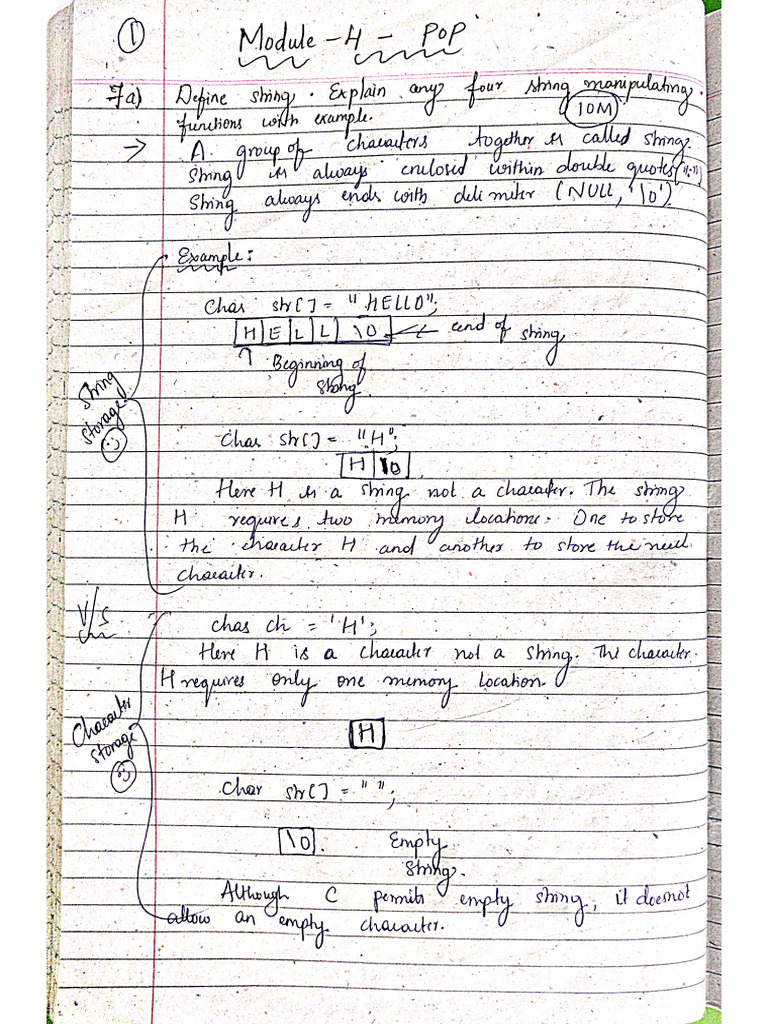 1
Module-4 - POP
7a) Define string. Explain any four string manipulating
functions with example. 10M
→ A group of characters together is called string.
String is always enclosed within double quotes(" ")
String always ends with delimiter (NULL, '\0')
Example:
Char str[] = "HELLO";
H E L L \0 ← end of string
↑ Beginning of
string
String
storage
Char str[] = "H";
H \0
Here H is a string not a character. The string
H requires two memory locations. One to store
the character H and another to store the null
character.
V/S
char ch = 'H';
Here H is a character not a string. The character
H requires only one memory location.
Character
storage
H
Char str[] = " ";
\0 Empty
String.
Although C permits empty string, it doesnot
allow an empty character.